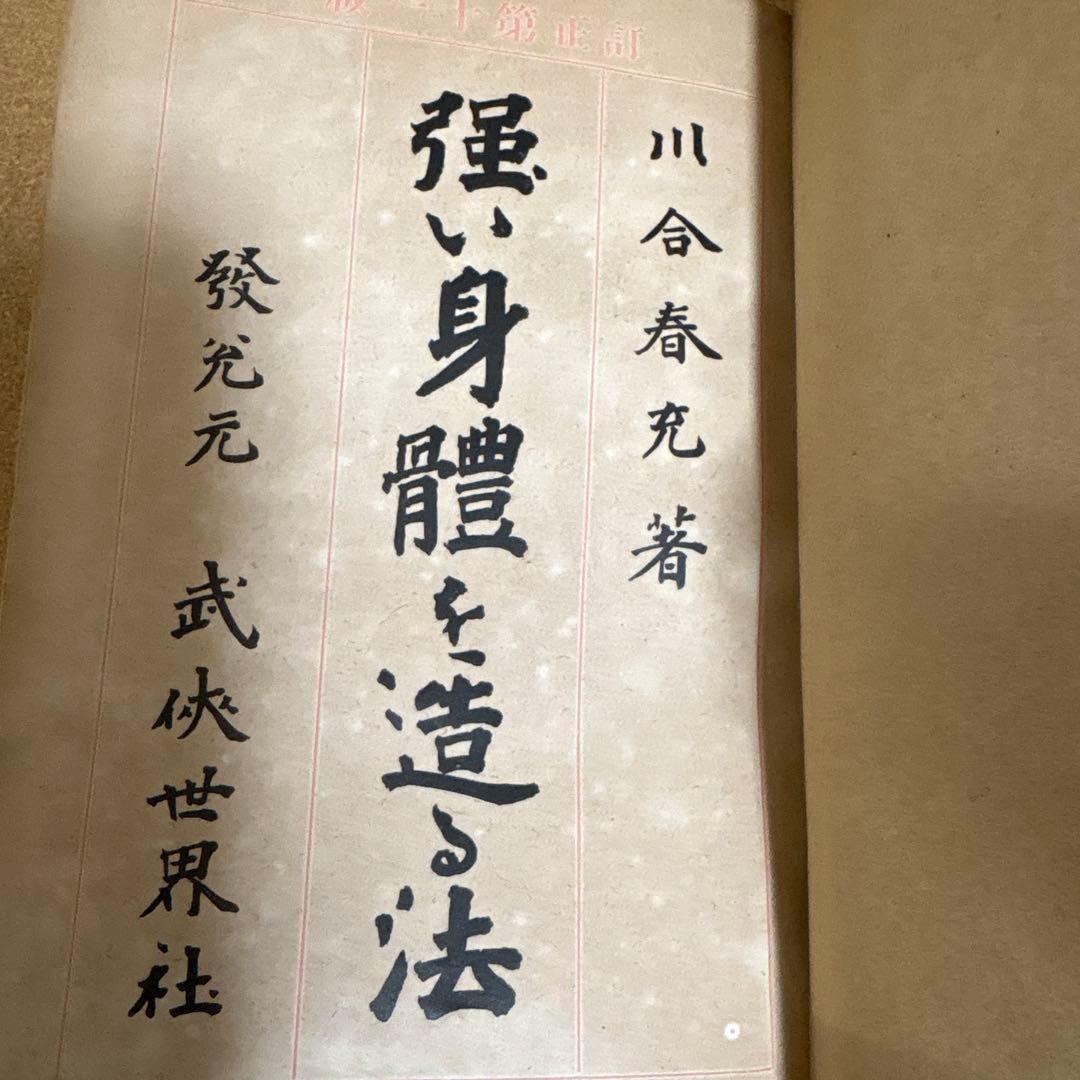 訂正第十
川合春充著
强い身體を造る法
發兌元 武俠世界社